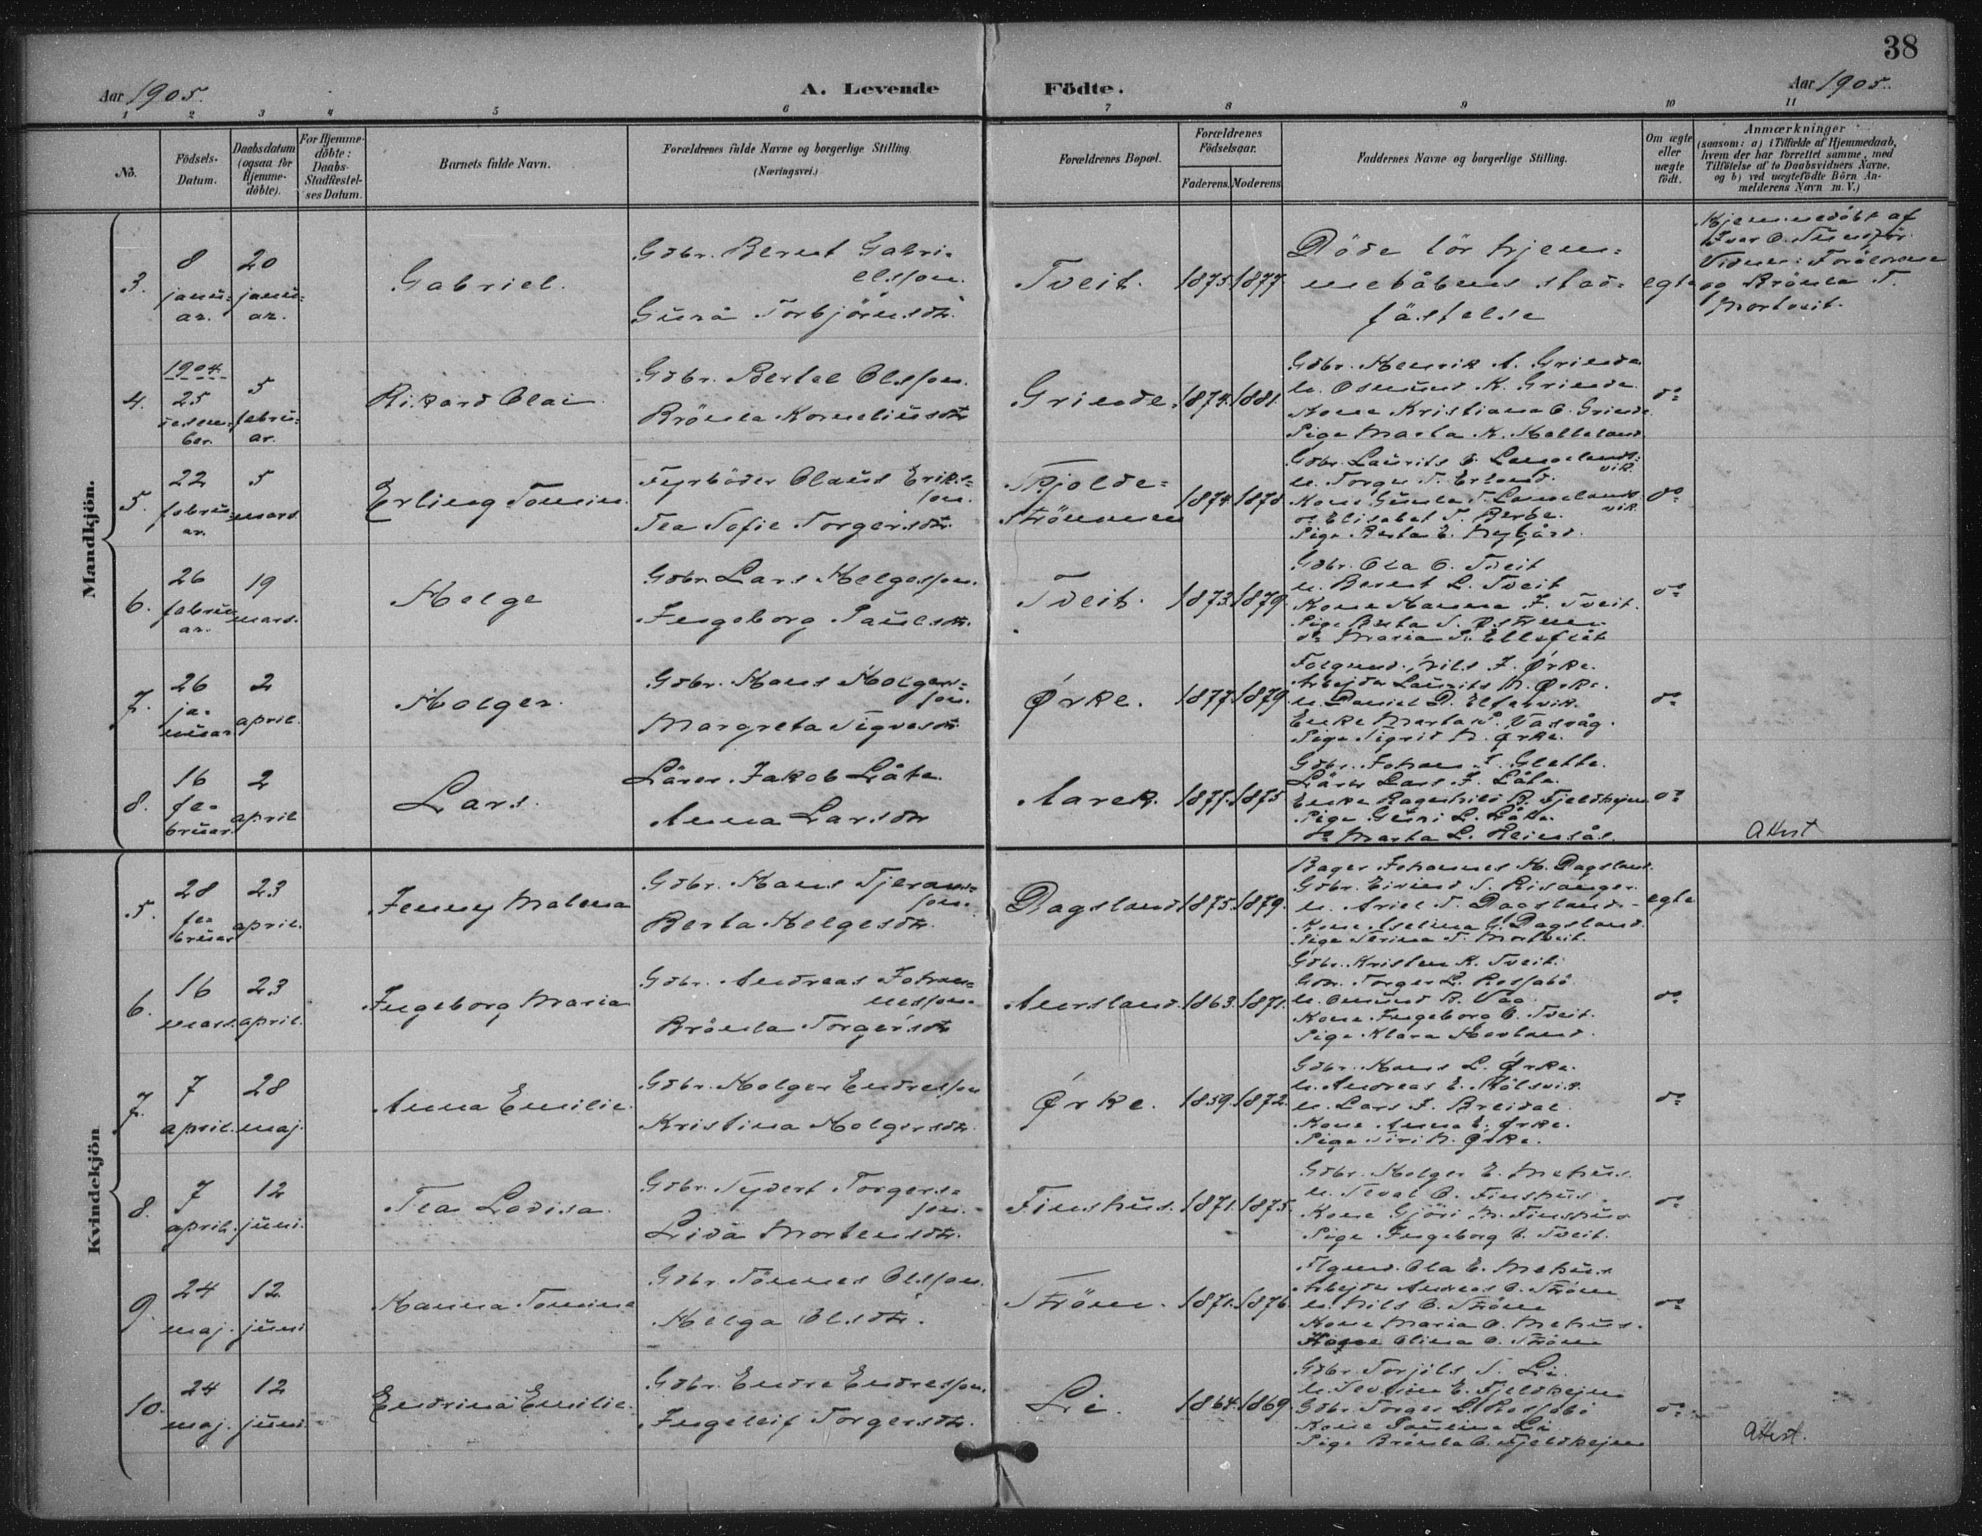 38
Aar 1905.
A. Levende Födte.
Aar 1905.
1 2 3 4 5 6 7 8 9 10 11
No.
Födsels-Datum.
Daabsdatum (ogsaa for Hjemme-döbte).
For Hjemme-döbte: Daabs-Stadfæstel-ses Datum.
Barnets fulde Navn.
Forældrenes fulde Navne og borgerlige Stilling (Næringsvei.)
Forældrenes Bopæl.
Forældrenes Födselsaar.
Faderens. Moderens.
Faddernes Navne og borgerlige Stilling.
Om ægte eller uægte födt.
Anmærkninger
(saasom: a) i Tilfælde af Hjemmedaab,
hvem der har forrettet samme, med
Tilföielse af to Daabsvidners Navne,
og b) ved uægtefödte Börn An-
melderens Navn m. V.)
Mandkjön.
3. 8 januar. 20 januar.
Gabriel.
Gdbr. Bernt Gabri-
elsson.
Gunå Torbjörnsdtr.
Tveit. 1875. 1877.
Döde för hjem-
medåbens stad-
fästelse
egte
Hjemmedöbt af
Ivar O.
Vidner: Forældrene
og Brönla T.
Mortveit.
4. 1904 25 desember. 5 februar.
Rikard Olai.
Gdbr. Bertel Olsson.
Brönla Korneliusdtr
Grinde. 1874. 1881.
Gdbr. Henrik A. Grinde
u. Osmund K. Grinde.
Kone Kristiana O. Grinde
Pige Marta K. Halleland.
do
5. 22 februar. 5 mars
Erling Tomin.
Fyrböder Olaus Erik-
son.
Tea Sofie Torgersdtr.
Skjolde-
strömmen 1874. 1878
Gdbr. Laurits E. Langelands-
vik.
u. Torger T. Erland.
Kone Gunla T. Langelands
vik.
og Elisabet T. Berbe.
Pige Berta E. Nygård.
do
6. 26 februar. 19 mars.
Helge
Gdbr. Lars Helgesson.
Ingeborg Paulsdtr.
Tveit. 1873. 1879.
Gdbr. Ola O. Tveit
u. Bernt L. Tveit
Kone Hanna J. Tveit.
Pige Berta S.
do Maria P.
do
7. 26 januar 2 april.
Holger.
Gdbr. Hans Holger-
son.
Margreta Sigvesdtr
Ørke. 1877. 1879.
Folgmd. Nils J. Ørke.
Arbejder Laurits M. Ørke.
u. Daniel D.
Enke Marta P. Vasvåg.
Pige Sigrid N. Ørke.
do
8. 16 februar 2 april
Lars.
Lärer. Jakob Låte.
Anna Larsdtr
Aarek. 1877. 1875
Gdbr. Johan J. Slette.
Lärer Lars J. Låte.
Enke Ragnhild B. Fjeldhejm
Pige Guri L. Låte.
do Marta L. Heimsås.
do
Attest
Kvindekjön
5. 28 februar 23 april.
Jenny Malena
Gdbr. Hans Tjerans-
son.
Berta Helgesdtr.
Dagsland 1875. 1879.
Bager Johannes H. Dagsland.
Gdbr. Eivind S. Risanger.
u. Ariel T. Dagsland.
Kone Aselina G. Dagsland.
Pige Serina T. Mortveit.
egte
6. 16 mars. 23 april.
Ingeborg Maria
Gdbr. Andreas Johan-
nesson.
Brönla Torgersdtr
Amsland. 1863. 1871.
Gdbr. Kristen K. Tveit.
Gdbr. Torger L. Rossabö
u. Omund B. Våg
Kone Ingeborg O. Tveit.
Pige Klara Hovland.
do
7. 7 april. 28 maj.
Anna Emilie.
Gdbr. Holger Endresson
Kristina Holgersdtr.
Ørke. 1859. 1872.
Gdbr. Hans L. Ørke.
u. Andreas E. Stölsvik.
u. Lars J. Breidal.
Kone Anna E. Ørke.
Pige Siri N. Ørke.
do
8. 7 april. 12 juni.
Tea Lovisa.
Gdbr. Sydert Torgers-
son.
Lidå Mortensdtr.
Finshus. 1871. 1875.
Gdbr. Holger E. Mehus.
u. Seval O. Finshus.
Kone Gjöri M. Finshus
Pige Ingeborg T. Tveit.
do
9. 24 maj. 12 juni
Hanna Tomina
Gdbr. Tönnes Olsson.
Helga Olsdtr.
Ström. 1871. 1876.
Flgmd. Ola E. Mehus
Arbejder Andreas O. Ström
u. Nils O. Ström
Kone Maria O. Mehus.
Kone Olina O. Ström
do
10. 24 maj. 12 juni
Endrina Emilie.
Gdbr. Endre Endresson.
Ingeleif Torgersdtr.
Li. 1864. 1869.
Gdbr. Torjils T. Li.
u. E. Fjeldhejm
Gdbr. Torger L. Rossabö
Kone Paulina Li
Pige Brönla O. Fjeldhejm
do
Attest.